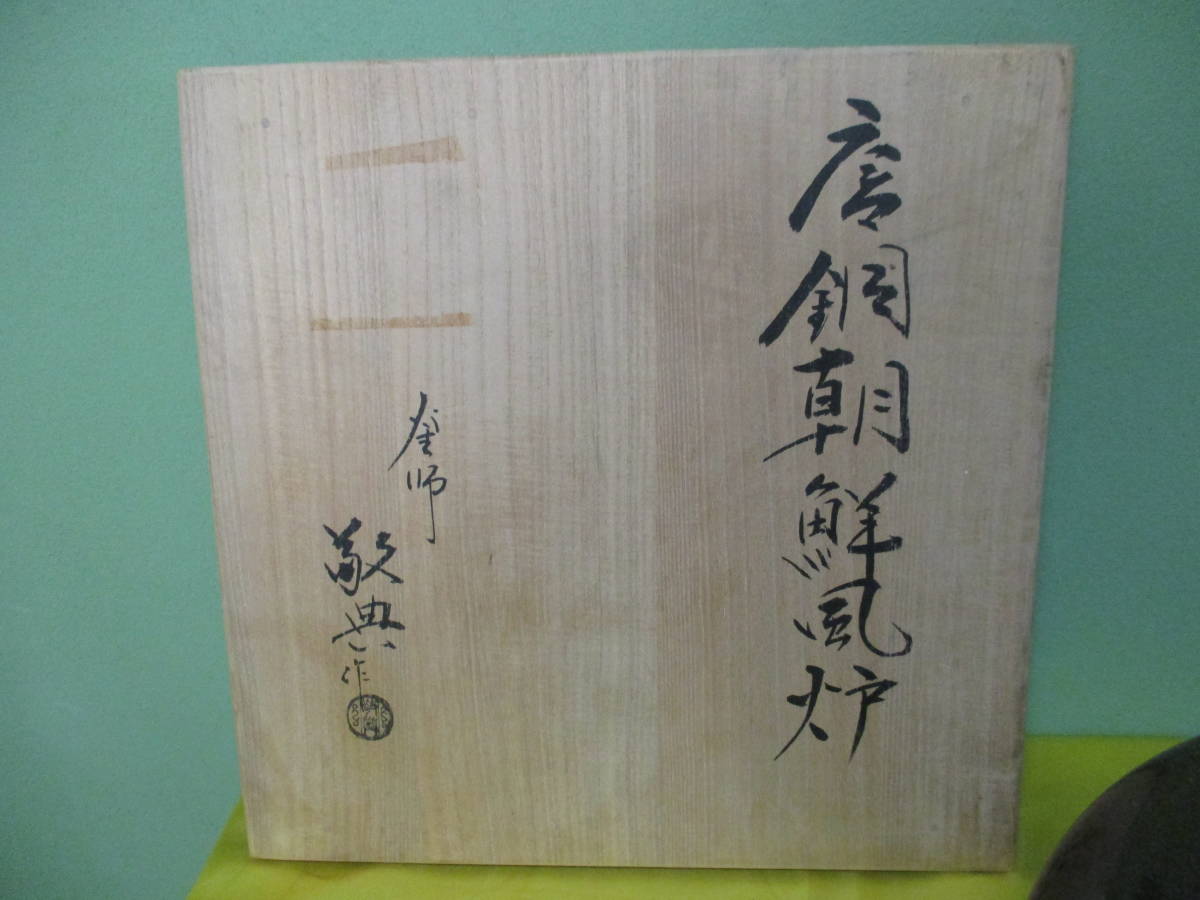 唐銅朝鮮風炉
釜師
敬典作